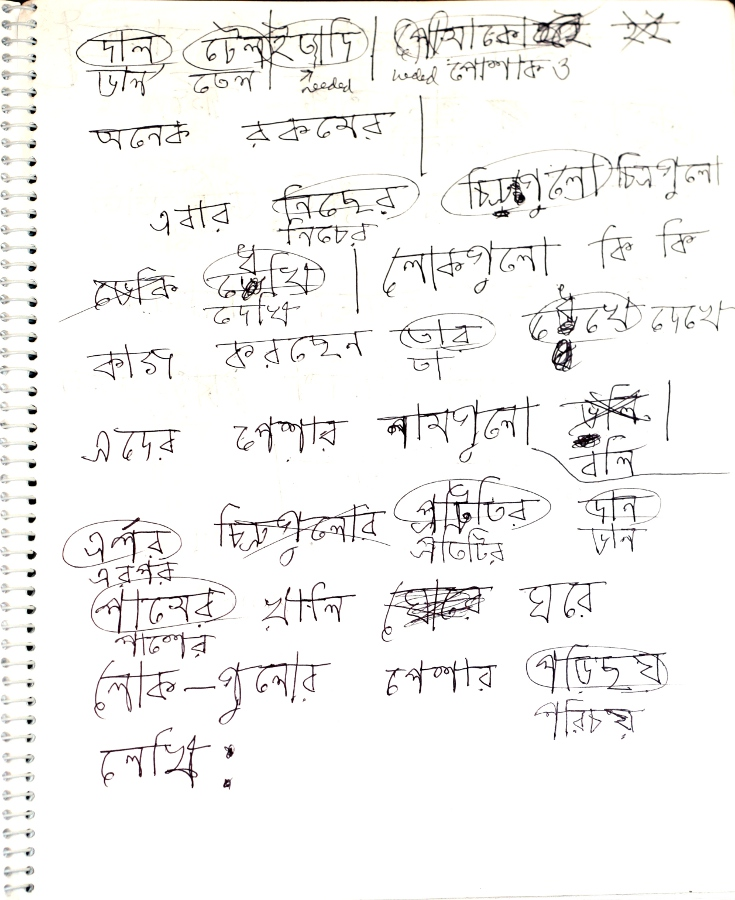 দাল টেল ইত্যাদি | পোষাকো হই
ডাল তেল | needed needed পোশাক ও
অনেক রকমের |
এবার নিছের চিত্রগুলো চিত্রগুলো
নিচের
দেখি | লোকগুলো কি কি
দেখি
কাজ করছেন তার দেখে দেখে
তা
এদের পেশার নামগুলো বলি |
এর্পর চিত্রগুলোর প্রটিতির দান
এরপর প্রতিটির ডান
পামের খালি ঘরে
পাশের
লোক-গুলোর পেশার পড়িছয়
পরিচয়
লেখি :